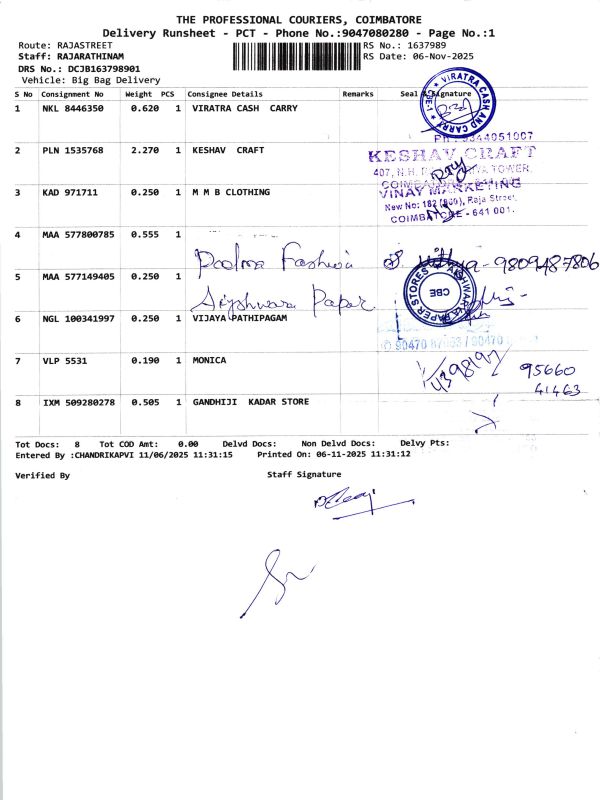 THE PROFESSIONAL COURIERS, COIMBATORE
Delivery Runsheet - PCT - Phone No.:9047080280 - Page No.:1
Route: RAJASTREET
RS No.: 1637989
Staff: RAJARATHINAM
RS Date: 06-Nov-2025
DRS No.: DCJB163798901
Vehicle: Big Bag Delivery
S No Consignment No Weight PCS Consignee Details Remarks Seal & Signature
1 NKL 8446350 0.620 1 VIRATRA CASH CARRY
VIRATRA CASH AND CARRY
2 PLN 1535768 2.270 1 KESHAV CRAFT
KESHAV CRAFT
3 KAD 971711 0.250 1 M M B CLOTHING
VINAY MARKETING
New No: 182 (860), Raja Street,
COIMBATORE - 641 001.
4 MAA 577800785 0.555 1
Padma Fashion
9809487806
5 MAA 577149405 0.250 1
Aiyshwara Paper
PAPER STORES
CBE
6 NGL 100341997 0.250 1 VIJAYA PATHIPAGAM
7 VLP 5531 0.190 1 MONICA
95660
41463
8 IXM 509280278 0.505 1 GANDHIJI KADAR STORE
Tot Docs: 8 Tot COD Amt: 0.00 Delvd Docs: Non Delvd Docs: Delvy Pts:
Entered By :CHANDRIKAPVI 11/06/2025 11:31:15 Printed On: 06-11-2025 11:31:12
Verified By
Staff Signature